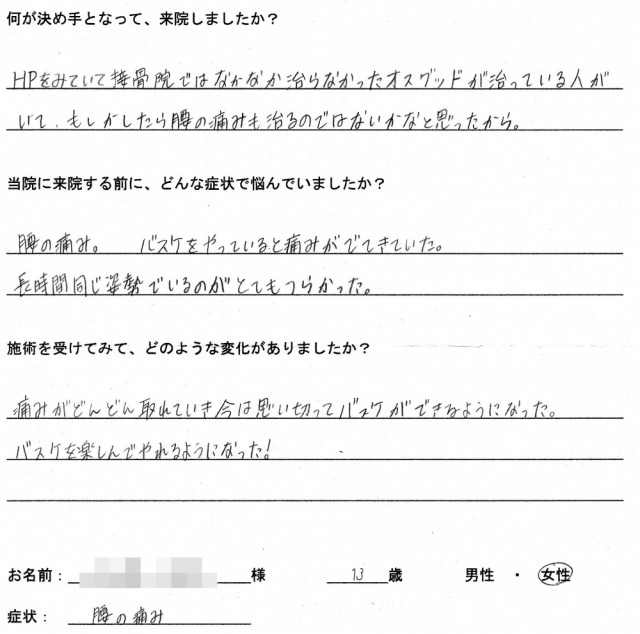 何が決め手となって、来院しましたか？
HPをみていて接骨院ではなかなか治らなかったオスグッドが治っている人が
いて、もしかしたら腰の痛みも治るのではないかなと思ったから。
当院に来院する前に、どんな症状で悩んでいましたか？
腰の痛み。 バスケをやっていると痛みがでてきていた。
長時間同じ姿勢でいるのがとてもつらかった。
施術を受けてみて、どのような変化がありましたか？
痛みがどんどん取れていき今は思い切ってバスケができるようになった。
バスケを楽しんでやれるようになった！
お名前： 様 13 歳 男性 ・ 女性
症状： 腰の痛み